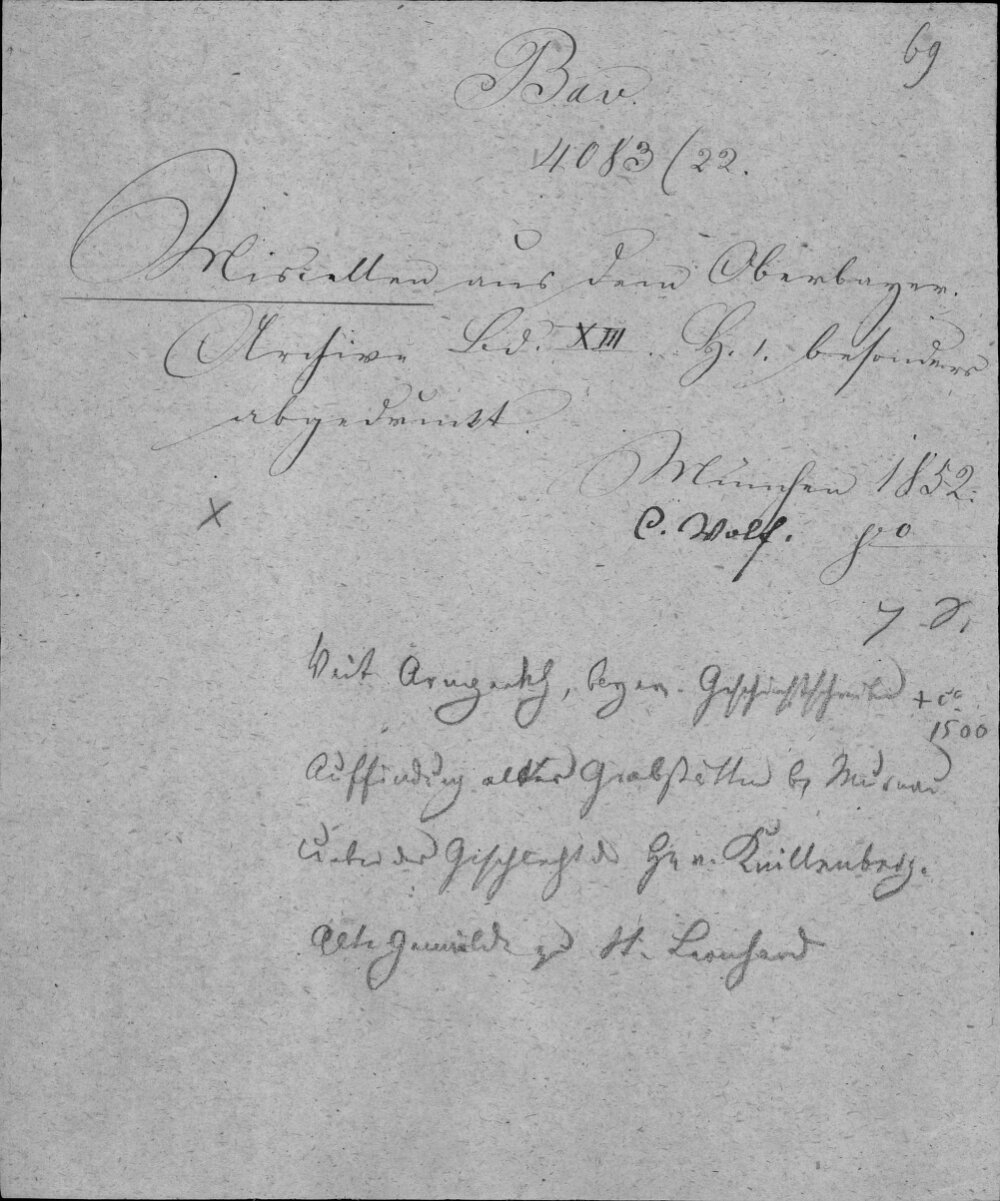 69
Bav.
4083/22.
Miscellen aus dem Oberbayer.
Archive Bd. XIII. H. 1. besonders
abgedruckt.
München 1852.
C. Wolf. 8°
7 S.
Veit Arnpekh, bayer. Geschichtschreiber + ca
1500
Auffindung alter Grabstätten b. Murnau
Ueber das Geschlecht de H. v. Knillenberg.
Alte Gemälde zu St. Leonhard